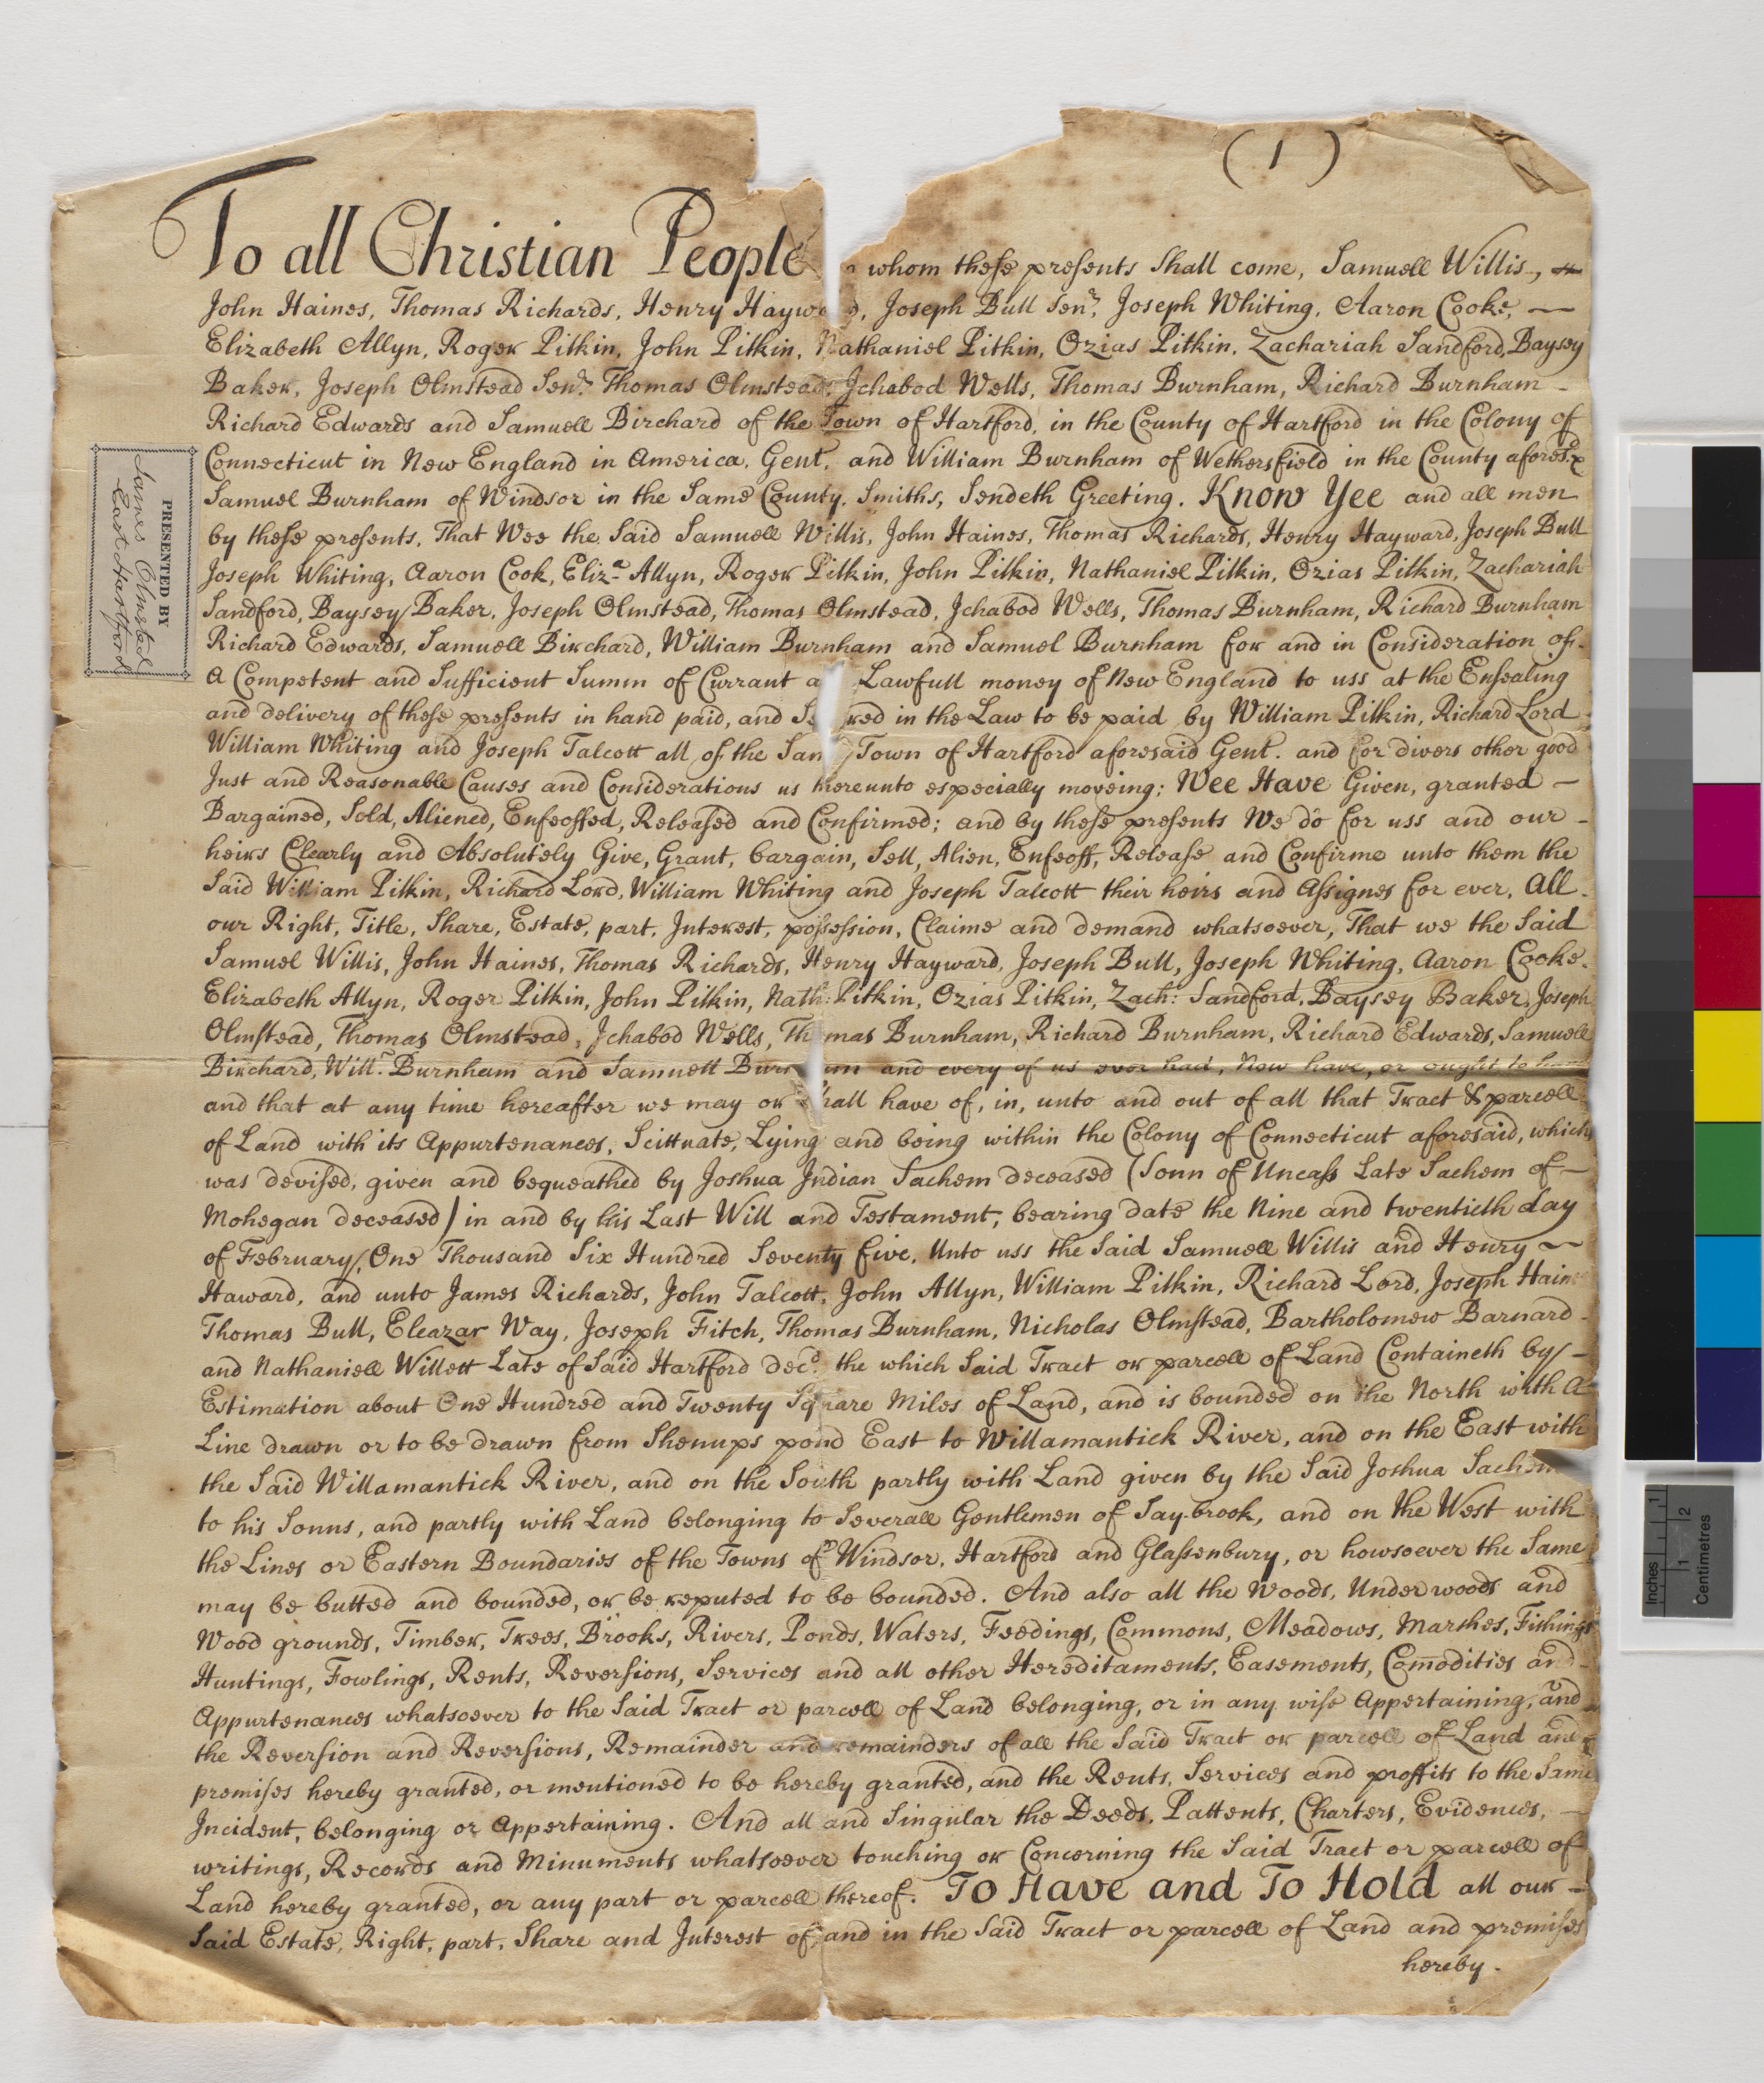 ( 1 )
To all Christian People whom these presents Shall come, Samuell Willis,
John Haines, Thomas Richards, Henry Haywo d, Joseph Bull Senr, Joseph Whiting, Aaron Cooke, —
Elizabeth Allyn, Roger Pitkin, John Pitkin, Nathaniel Pitkin, Ozias Pitkin, Zachariah Sandford, Baysey
Baker, Joseph Olmstead Senr. Thomas Olmstead, Jchabod Wells, Thomas Burnham, Richard Burnham -
Richard Edwards and Samuell Birchard of the Town of Hartford, in the County of Hartford in the Colony of
Connecticut in New England in America, Gent. and William Burnham of Wethersfield in the County afores.d &
Samuel Burnham of Windsor in the Same County, Smiths, Sendeth Greeting. Know Yee and all men
by these presents, That Wee the Said Samuell Willis, John Haines, Thomas Richards, Henry Hayward, Joseph Bull
Joseph Whiting, Aaron Cook, Eliz.a Allyn, Roger Pitkin, John Pitkin, Nathaniel Pitkin, Ozias Pitkin, Zachariah
Sandford, Baysey Baker, Joseph Olmstead, Thomas Olmstead, Jchabod Wells, Thomas Burnham, Richard Burnham
Richard Edwards, Samuell Birchard, William Burnham and Samuel Burnham for and in Consideration of -
a Competent and Sufficient Summ of Currant a Lawfull money of New England to uss at the Ensealing
and delivery of these presents in hand paid, and Se red in the Law to be paid by William Pitkin, Richard Lord
William Whiting and Joseph Talcott all of the Sam Town of Hartford aforesaid Gent. and for divers other good
Just and Reasonable Causes and Considerations us hereunto especially moveing; Wee Have Given, granted —
Bargained, Sold, Aliened, Enfeoffed, Released and Confirmed; and by these presents We do for uss and our -
heirs Clearly and Absolutely Give, Grant, bargain, Sell, Alien, Enfeoff, Release and Confirme unto them the
Said William Pitkin, Richard Lord, William Whiting and Joseph Talcott their heirs and Assignes for ever, All -
our Right, Title, Share, Estate, part, Jnterest, possession, Claime and demand whatsoever, That we the Said
Samuel Willis, John Haines, Thomas Richards, Henry Hayward, Joseph Bull, Joseph Whiting, Aaron Cooke -
Elizabeth Allyn, Roger Pitkin, John Pitkin, Nath: Pitkin, Ozias Pitkin, Zach: Sandford, Baysey Baker, Joseph
Olmstead, Thomas Olmstead, Jchabod Wells, Thomas Burnham, Richard Burnham, Richard Edwards, Samuell
Birchard, Will.m Burnham and Samuell Burn am and every of us ever had, Now have, or ought to
and that at any time hereafter we may or Shall have of, in, unto and out of all that Tract & parcell
of Land with its Appurtenances, Scittuate, Lying and being within the Colony of Connecticut aforesaid, which
was devised, given and bequeathed by Joshua Jndian Sachem deceased (Sonn of Uncass Late Sachem of —
Mohegan deceased) in and by his Last Will and Testament, bearing date the Nine and twentieth day
of February, One Thousand Six Hundred Seventy five, Unto uss the Said Samuell Willis and Henry —
Haward, and unto James Richards, John Talcott, John Allyn, William Pitkin, Richard Lord, Joseph Haines
Thomas Bull, Eleazar Way, Joseph Fitch, Thomas Burnham, Nicholas Olmstead, Bartholomew Barnard -
and Nathaniell Willett Late of Said Hartford decd. the which Said Tract or parcell of Land Containeth by -
Estimation about One Hundred and Twenty Square Miles of Land, and is bounded on the North with A
Line drawn or to be drawn from Shenups pond East to Willamantick River, and on the East with
the Said Willamantick River, and on the South partly with Land given by the Said Joshua Sachem
to his Sonns, and partly with Land belonging to Severall Gentlemen of Say-brook, and on the West with
the Lines or Eastern Boundaries of the Towns of Windsor, Hartford and Glassenbury, or howsoever the Same
may be butted and bounded, or be reputed to be bounded. And also all the Woods, Underwoods and
Wood grounds, Timber, Trees, Brooks, Rivers, Ponds, Waters, Feedings, Commons, Meadows, Marshes, Fishings
Huntings, Fowlings, Rents, Reversions, Services and all other Hereditaments, Easements, Comodities and -
Appurtenances whatsoever to the Said Tract or parcell of Land belonging, or in any wise Appertaining, and
the Reversion and Reversions, Remainder and remainders of all the Said Tract or parcell of Land and
premises hereby granted, or mentioned to be hereby granted, and the Rents, Services and proffits to the Same
Jncident, belonging or Appertaining. And all and Singular the Deeds, Pattents, Charters, Evidences, —
writings, Records and Minuments whatsoever touching or Concerning the Said Tract or parcell of
Land hereby granted, or any part or parcell thereof. To Have and To Hold all our -
Said Estate, Right, part, Share and Jnterest of, and in the Said Tract or parcell of Land and premises
hereby -
PRESENTED BY
James Olmsted
East Hartford
Inches 1
1 2
Centimetres